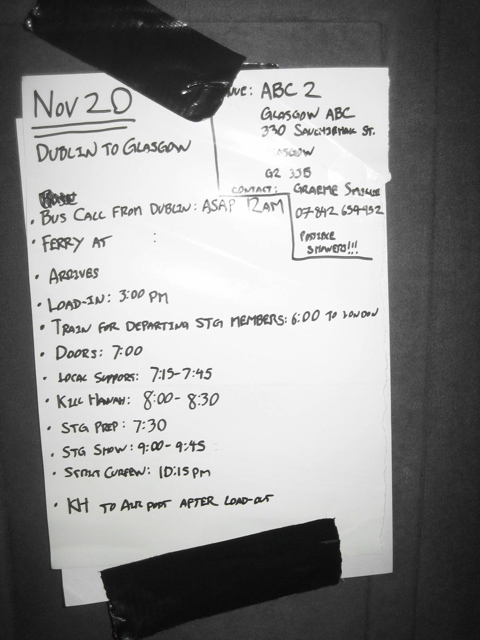 Nov 20
DUBLIN TO GLASGOW
ABC 2
GLASGOW ABC
330 ST.
G2
CONTACT: GRAEME
07842
POSSIBLE
SHOWERS!!!
• BUS CALL FROM DUBLIN: ASAP 12AM
• FERRY AT :
• ARRIVES
• LOAD-IN: 3:00 PM
• TRAIN FOR DEPARTING STG MEMBERS: 6:00 TO LONDON
• DOORS: 7:00
• LOCAL SUPPORT: 7:15-7:45
• KILL HANAH: 8:00-8:30
• STG PREP: 7:30
• STG SHOW: 9:00-9:45
• STRICT CURFEW: 10:15 PM
• KH TO AIRPORT AFTER LOAD-OUT